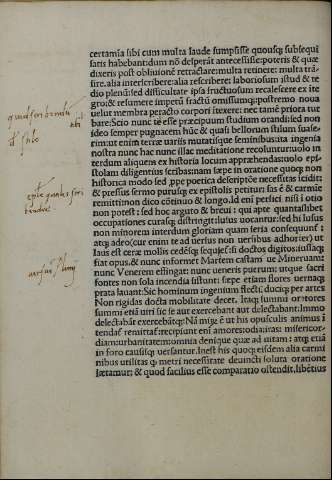 certamia sibi cum multa laude sumpsisse quousq; subsequi
satis habebant: dum nō despērat antecessisse: poteris & quæ
dixeris post obliuionē retractare: multa retinere: multa trā-
sire. alia interscribere: alia rescribere: laboriosum istud & te
dio plenū: sed difficultate ipsa fructuosum recalescere ex ite
gro: & resumere impetū fractū omissumq; postremo noua
uelut membra peracto corpori itexere: nec tamē priora tur
bare: Scio nunc tē esse præcipuum studium orandi: sed non
ideo semper pugnacem hūc & quasi bellorum stilum suase-
rim: ut enim terræ uariis mutatisq; seminibus: ita ingenia
nostra nunc hac nunc illac meditatione recoluntur: uolo in
terdum aliquem ex historia locum appræhendas: uolo epi-
stolam diligentius scribas: nam sæpe in oratione quoq; non
historica modo sed ppe poetica descriptōe necessitas icidit:
& pressus sermo purusq; ex epistolis petitur: fas ē & carmīe
remitti: non dico cōtinuo & longo. Id eni perfici nisi i otio
non potest: sed hoc arguto & breui: qui apte quantaslibet
occupationes curasq; distringit: lusus uocantur. sed hi lusus
non minorem interdum gloriam quam seria consequunf:
atq; adeo (cur enim te ad uersus non uersibus adhorter) ut
laus est ceræ: mollis cedēsq; sequaf: si doctos digitos: iussaq;
fiat opus. & nunc informet Martem castam ue Mineruam:
nunc Venerem effingat: nunc ueneris puerum: utque sacri
fontes non sola incendia sistunt: sæpe etiam flores uernaq;
prata iauant: Sic hominum ingenium flecti. duciq; per artes
Non rigidas docta mobilitate decet. Itaq; summi oratores
summi etiā uiri sic se aut exercebant aut delectabant: Immo
delectabāt exercebātq;: Nā mirū ē ut his opusculis animus i
tendaf remittaf: recipiunt eni amores: odia: iras: misericor-
diam: urbanitatem: omnia denique quæ ad uitam: atq; etiā
in foro causisq; uersantur. Inest his quoq; eisdem alia carmi
nibus utilitas q; metri necessitate deuincti soluta oratione
lætamur; & quod facilius esse comparatio ostendit, libētius